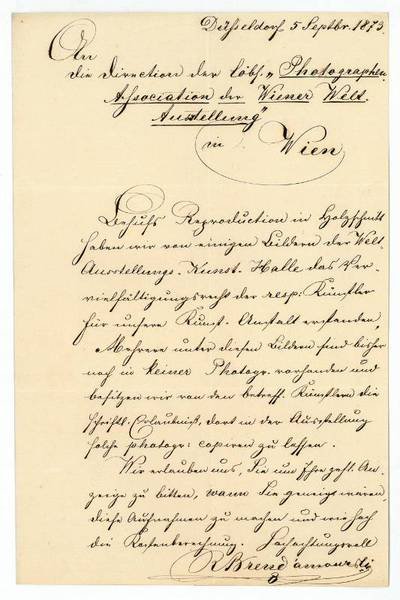 Düsseldorf 5 Septbr. 1873.
An
die Direction der löbl. „Photographen
Association der Wiener Welt-
Ausstellung“
in
Wien
Behufs Reproduction in Holzschnitt
haben wir von einigen Bildern der Welt-
Ausstellungs-Kunst-Halle das Ver-
vielfältigungsrecht der resp: Künstler
für unsere Kunst-Anstalt erstanden,
Mehrere unter diesen Bildern sind bisher
noch in keiner Photogr. vorhanden und
besitzen wir von den betreff. Künstlern die
schriftl. Erlaubniß, dort in der Ausstellung
solche photogr: copiren zu lassen.
Wir erlauben uns, Sie um Ihre gefl. An-
zeige zu bitten, wann Sie geneigt wären,
diese Aufnahmen zu machen und wie hoch
die Kostenberechnung. Hochachtungsvoll
R Brend'amour